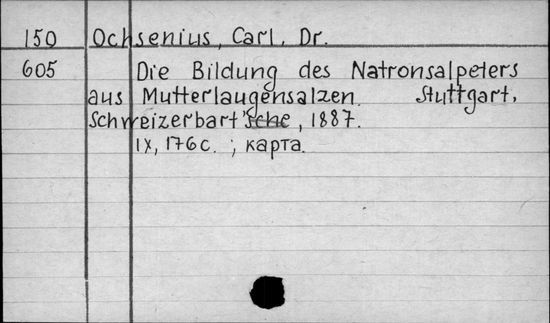 150 Ochsenius, Carl, Dr.
605 Die Bildung des Natronsalpeters
aus Mutterlaugensalzen. Stuttgart,
Schweizerbart'sche, 1887.
IX, 176 с. ; карта.